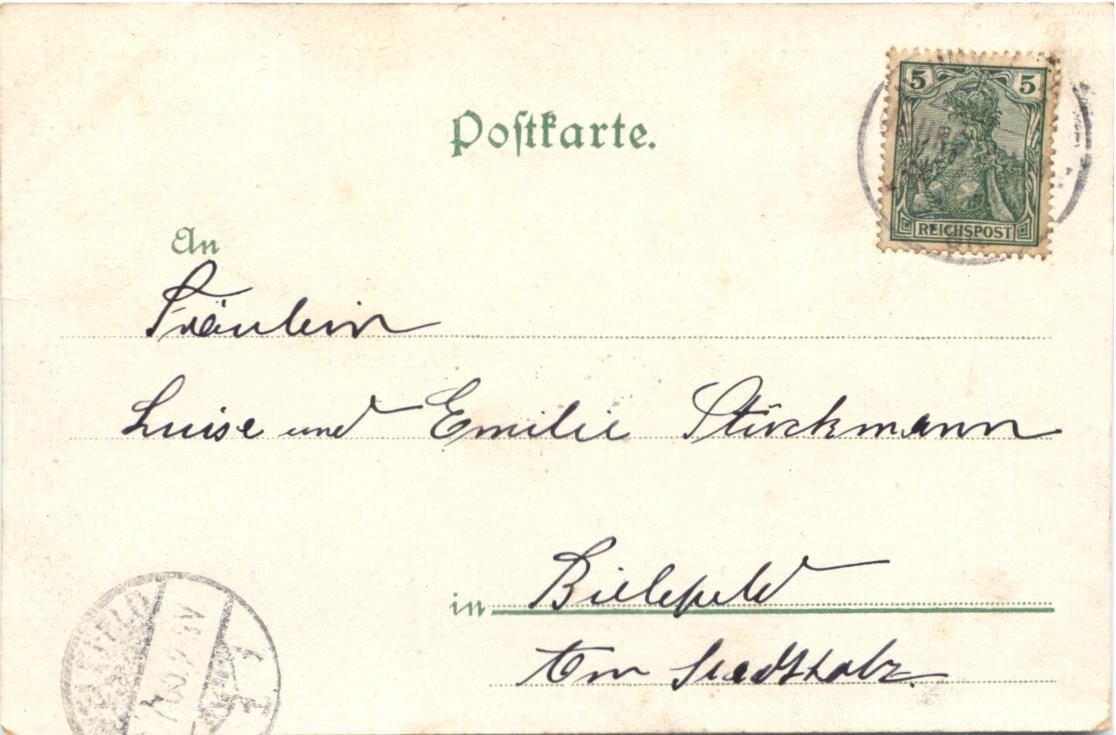 5 5
REICHSPOST
Postkarte.
An
Fräulein
Luise und Emilie Stückmann
in Bielefeld
Am Stadtholz.